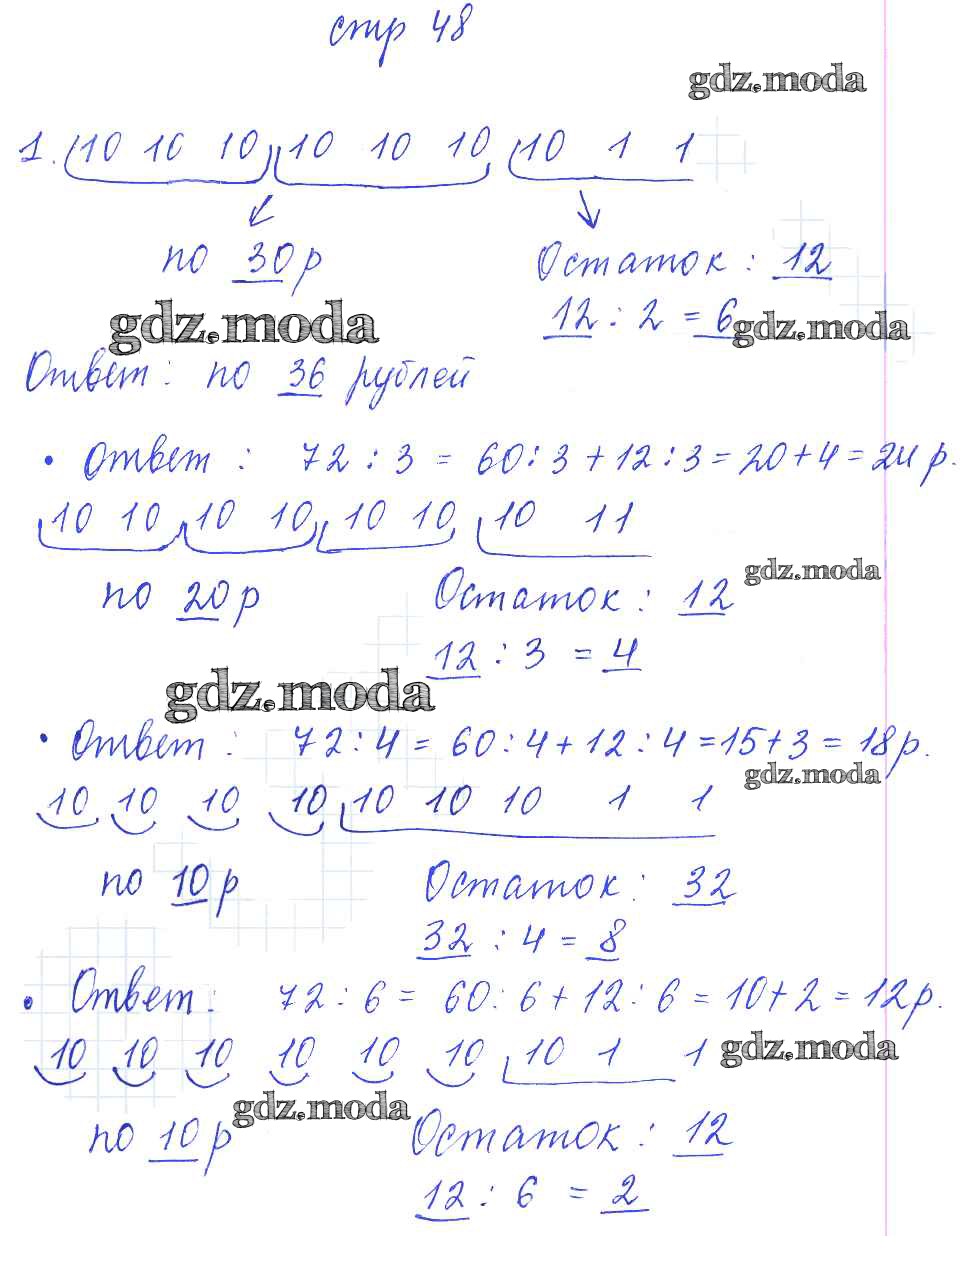 стр 48
gdz.moda
1. 10 10 10 10 10 10 10 1 1
по 30 р Остаток : 12
12 : 2 = 6
gdz.moda gdz.moda
Ответ : по 36 рублей
• Ответ : 72 : 3 = 60 : 3 + 12 : 3 = 20 + 4 = 24 р.
10 10 10 10 10 10 10 1 1
gdz.moda
по 20 р Остаток : 12
12 : 3 = 4
gdz.moda
• Ответ : 72 : 4 = 60 : 4 + 12 : 4 = 15 + 3 = 18 р.
gdz.moda
10 10 10 10 10 10 10 1 1
по 10 р Остаток : 32
32 : 4 = 8
• Ответ : 72 : 6 = 60 : 6 + 12 : 6 = 10 + 2 = 12 р.
10 10 10 10 10 10 10 1 1
gdz.moda
gdz.moda
по 10 р Остаток : 12
12 : 6 = 2